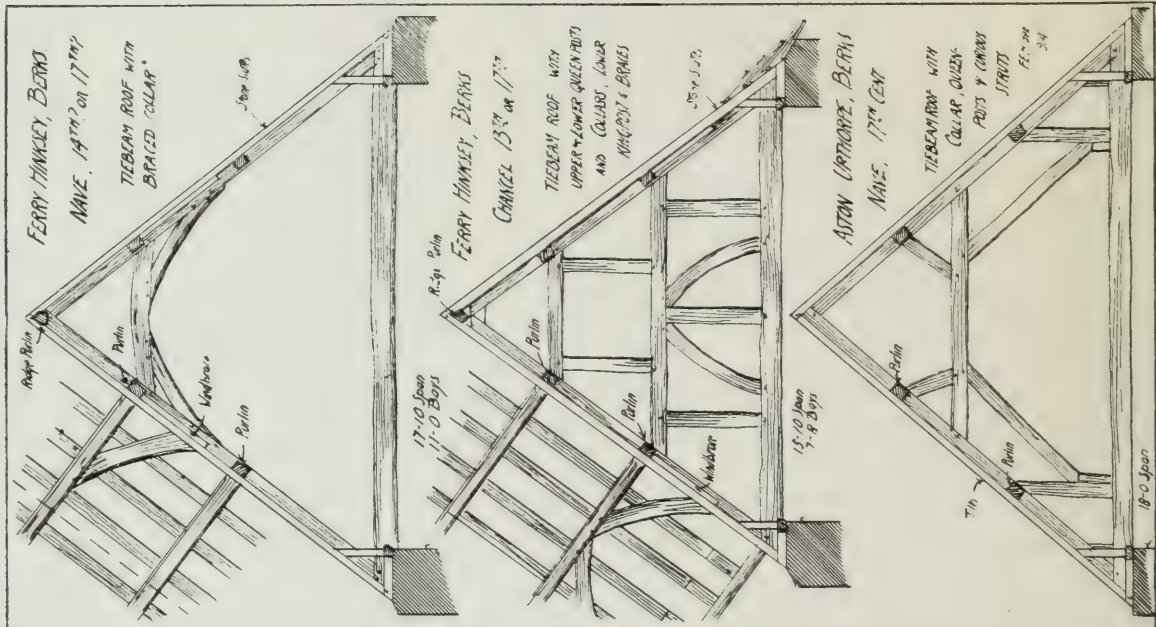 FERRY HINKSEY, BERKS.
NAVE. 14TH? OR 17TH?
TIEBEAM ROOF WITH
BRACED COLLAR
Ridge Purlin
Purlin
Windbrace
Purlin
17-10 Span
11-0 Bays
FERRY HINKSEY, BERKS
CHANCEL 13TH OR 17TH
TIEBEAM ROOF WITH
UPPER & LOWER QUEEN POSTS
AND COLLARS, LOWER
KINGPOST & BRACES
Ridge Purlin
Purlin
Purlin
Windbrace
15-10 Span
7-8 Bays
ASTON UPTHORPE, BERKS
NAVE. 17TH CENT
TIEBEAM ROOF WITH
COLLAR, QUEEN-
POSTS & CURIOUS
STRUTS
Purlin
18-0 Span